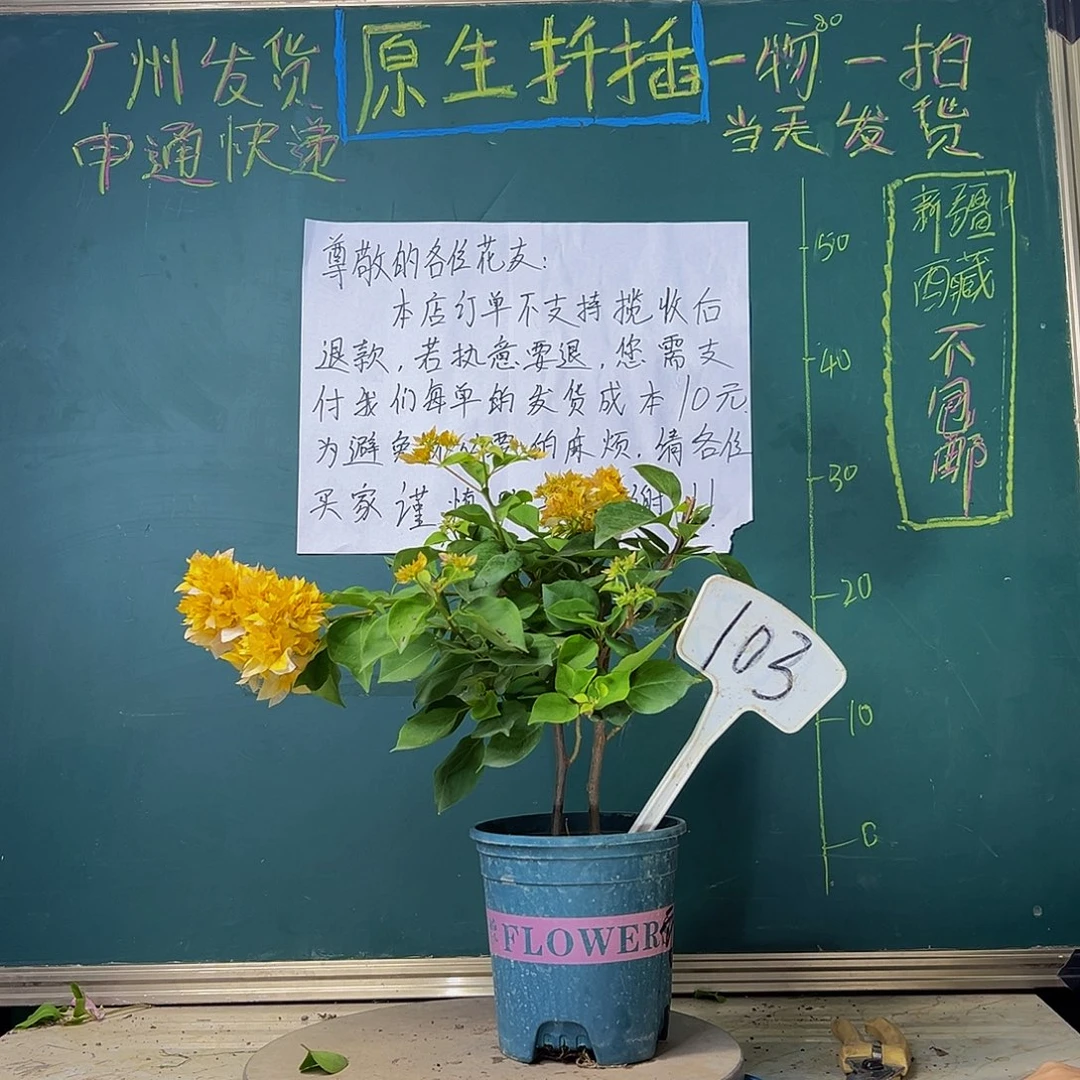 广州发货
申通快递
原生扦插
一物一拍
80
当天发货
新疆
西藏
不
包
邮
50
40
30
20
10
0
尊敬的各位花友:
本店订单不支持揽收后
退款,若执意要退,您需支
付我们每单的发货成本10元
为避免 的麻烦.请各位
买家谨慎 谢!!
103
FLOWER